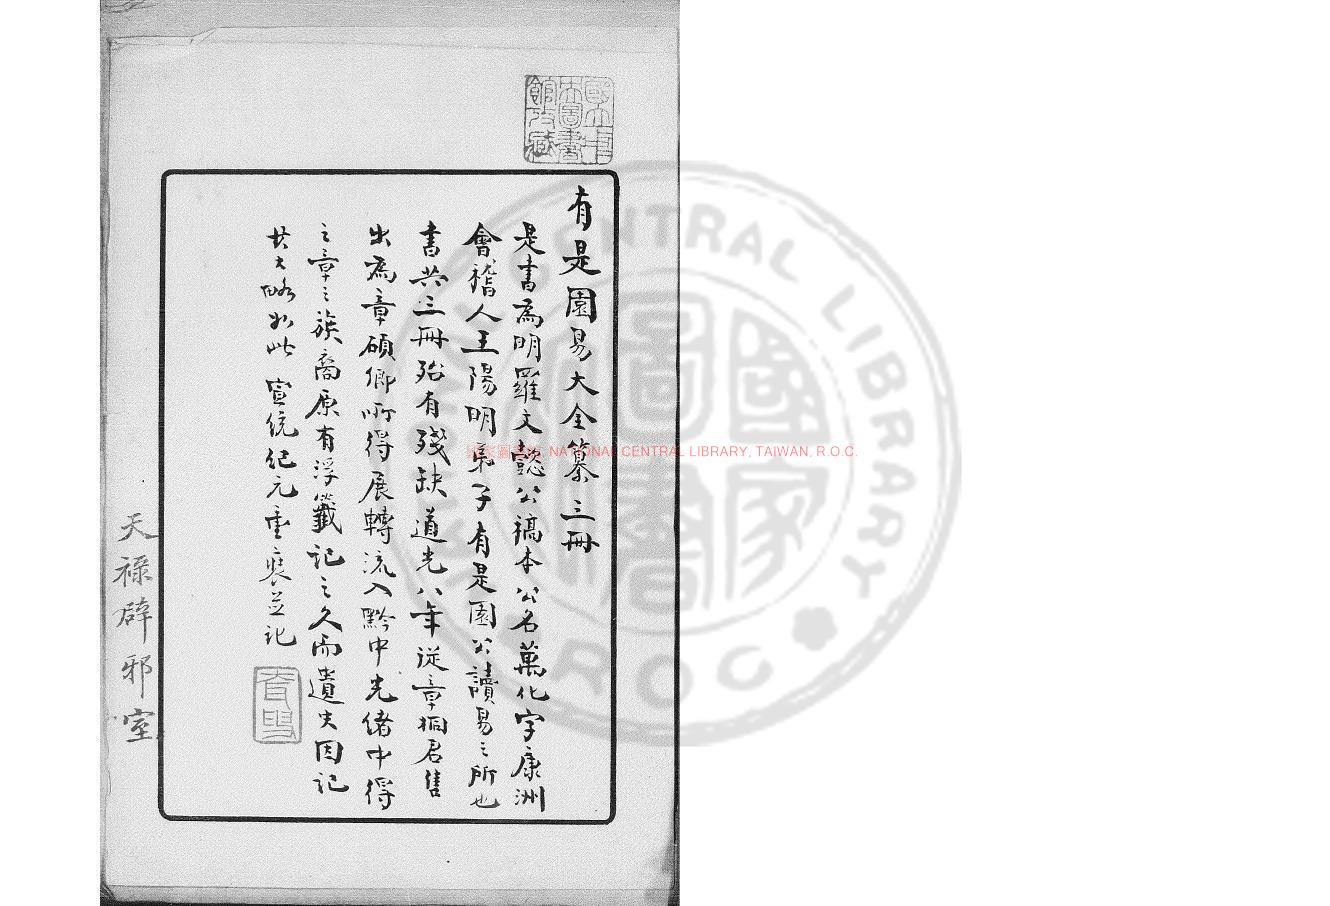 有是園易大全纂三冊
是書為明羅文懿公稿本公名萬化字康洲
會稽人王陽明弟子有是園公讀易之所也
書共三冊殆有殘缺道光八年從章桐君售
出為章碩卿所得展轉流入黔中光緒中得
之章之族裔原有浮籤記之久而遺失因記
其大略如此 宣統紀元重裝並記
天祿辟邪室
國立中央圖書館收藏
NATIONAL CENTRAL LIBRARY, TAIWAN, R.O.C.
國家圖書館
NATIONAL CENTRAL LIBRARY R.O.C